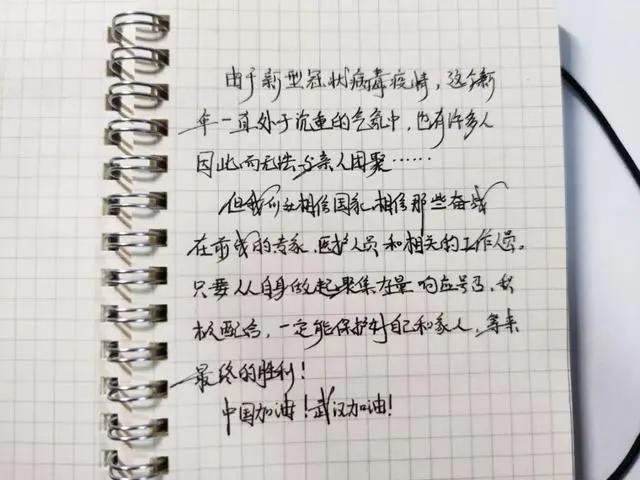 由于新型冠状病毒疫情，这个新
年一直处于沉重的气氛中，也有许多人
因此而无法与亲人团聚……
但我们要相信国家，相信那些奋战
在前线的专家、医护人员和相关的工作人员。
只要从自身做起，聚集力量，响应号召，积
极配合，一定能保护好自己和家人，等来
最终的胜利！
中国加油！武汉加油！